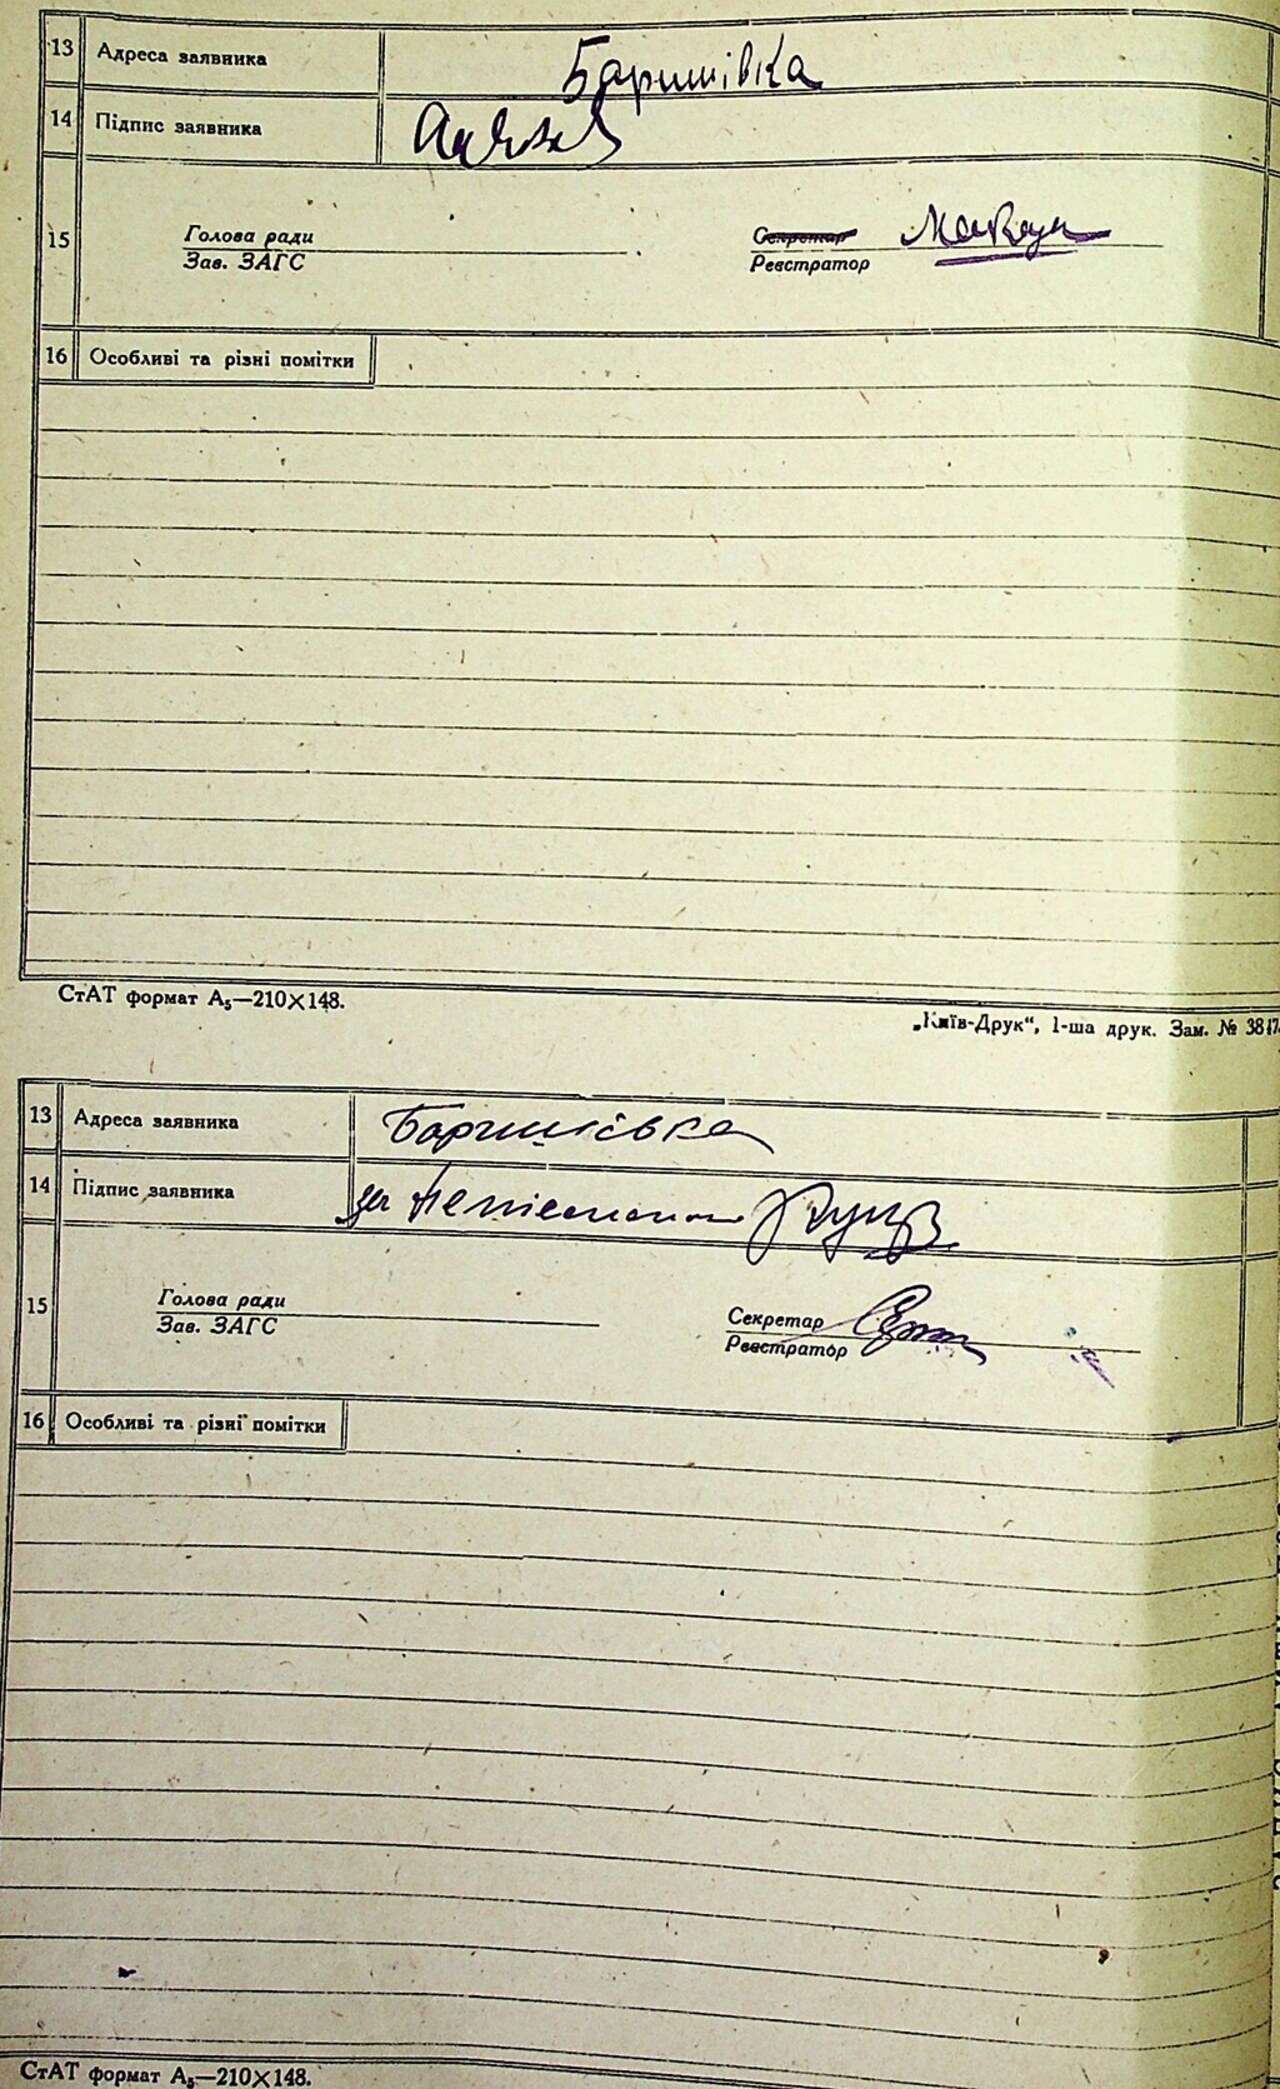 13 Адреса заявника Баришівка
14 Підпис заявника
15 Голова ради Секретар
Зав. ЗАГС Реєстратор
16 Особливі та різні помітки
СтАТ формат А₅—210×148.
„Київ-Друк“, 1-ша друк. Зам. № 3847.
13 Адреса заявника Баришівка
14 Підпис заявника за
15 Голова ради Секретар
Зав. ЗАГС Реєстратор
16 Особливі та різні помітки
СтАТ формат А₅—210×148.